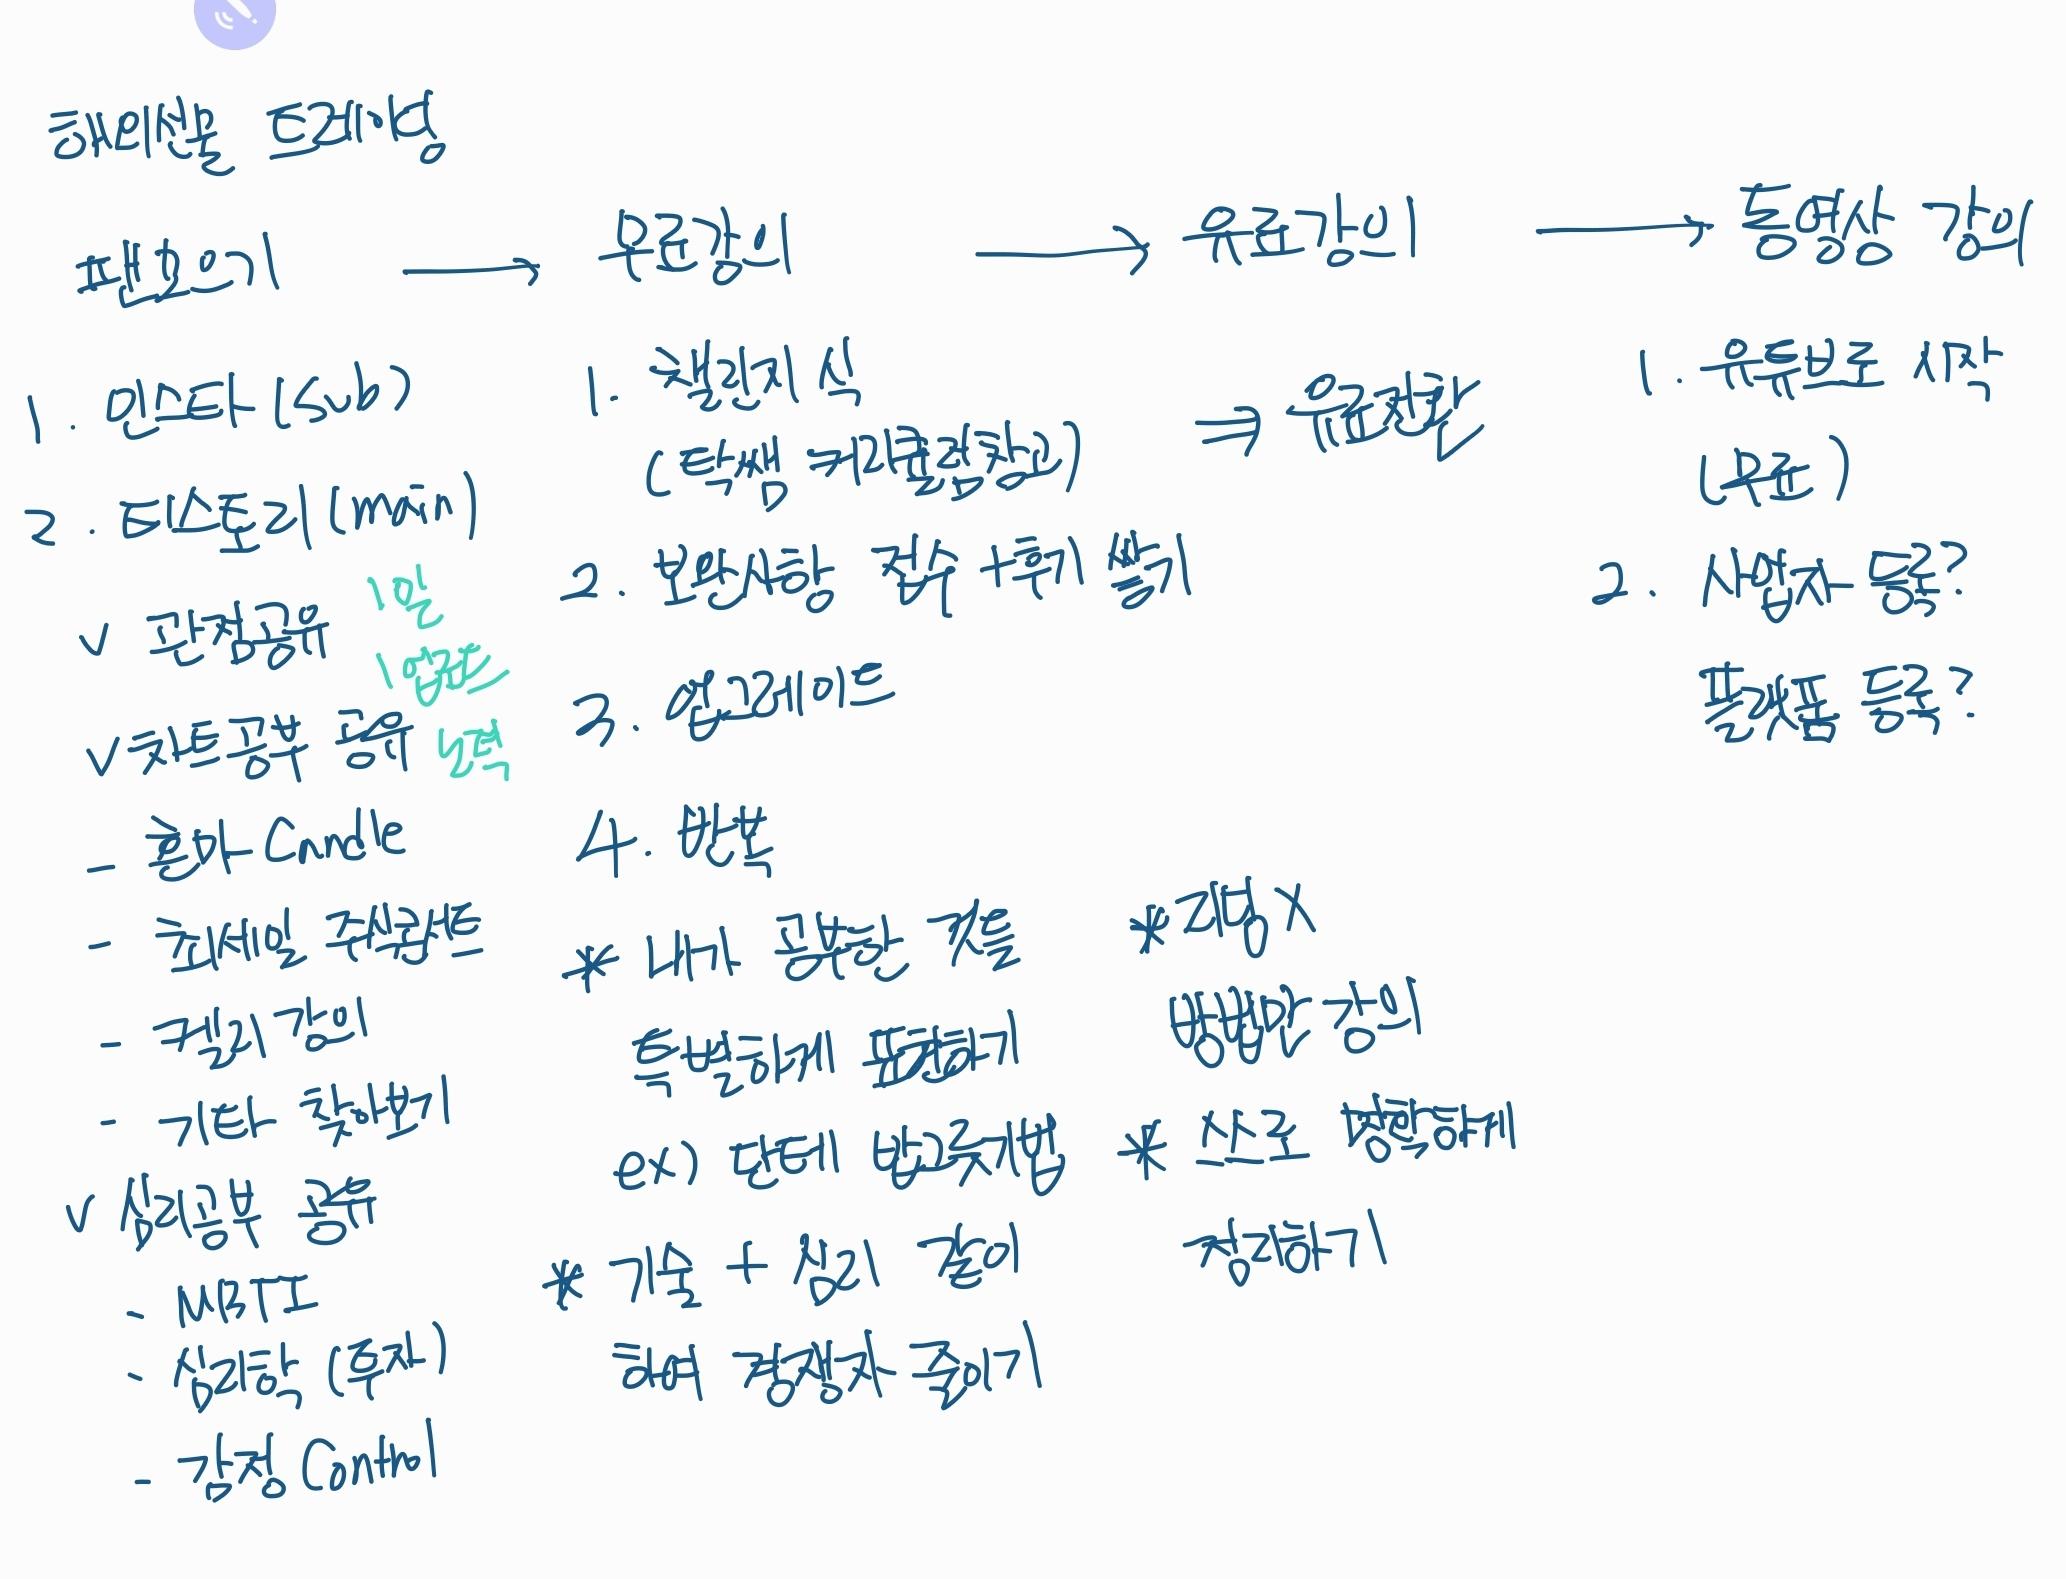 해외선물 트레이딩
팬모으기 → 무료강의 → 유료강의 → 동영상 강의
1. 인스타 (sub)
2. 티스토리 (main)
v 관점공유
1일
1업로드
노력
v 차트공부 공유
- 혼마 Candle
- 최세일 주식콘서트
- 켈리 강의
- 기타 찾아보기
v 심리공부 공유
- MBTI
- 심리학 (투자)
- 감정 Control
1. 챌린지 식
(탁쌤 커리큘럼참고)
2. 보완사항 접수 + 후기 쌓기
3. 업그레이드
4. 반복
* 내가 공부한 것들
특별하게 표현하기
ex) 단테 밥그릇기법
* 기술 + 심리 같이
하여 경쟁자 줄이기
⇒ 유료전환
* 리딩 X
방법만 강의
* 스스로 명확하게
정리하기
1. 유튜브로 시작
(무료)
2. 사업자 등록?
플랫폼 등록?